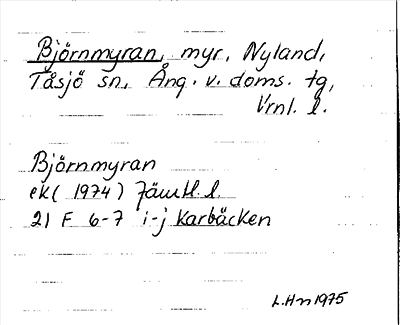 Björnmyran, myr, Nyland,
Tåsjö sn, Ång. v. doms. tg,
Vrnl. l.
Björnmyran
ek (1974) Jämtl. l.
21 F 6-7 i-j Karbäcken
L.Hn 1975